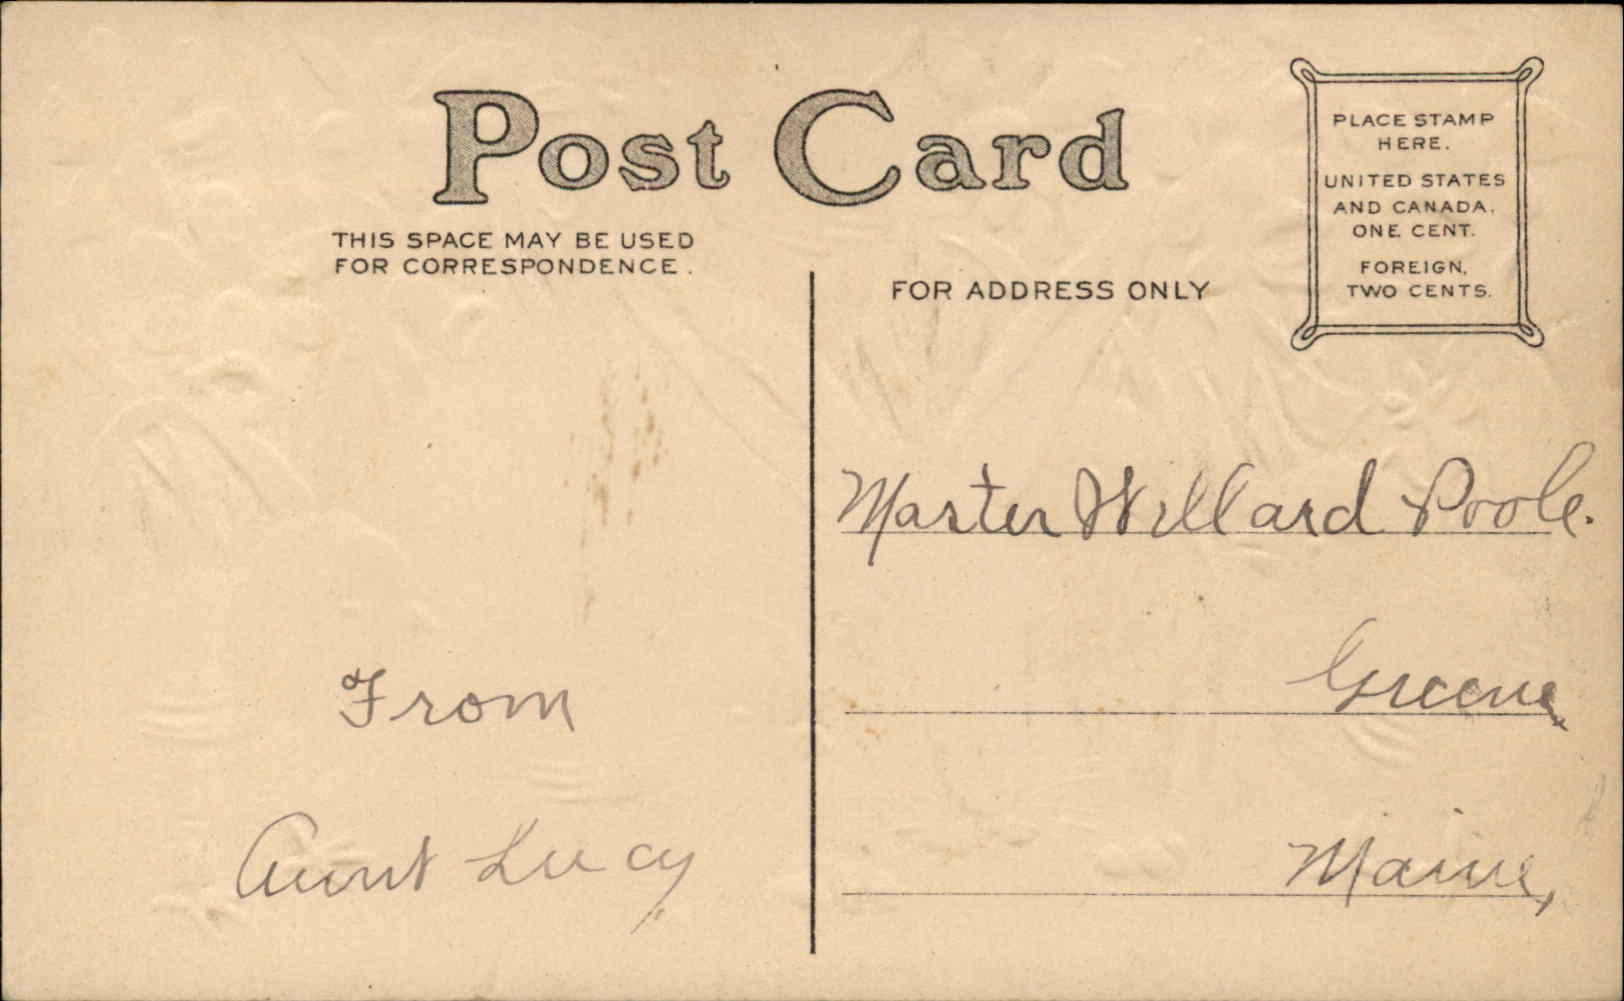 Post Card
THIS SPACE MAY BE USED
FOR CORRESPONDENCE.
FOR ADDRESS ONLY
PLACE STAMP
HERE.
UNITED STATES
AND CANADA,
ONE CENT.
FOREIGN,
TWO CENTS.
From
Aunt Lucy
Master Willard Poole.
Greene,
Maine,